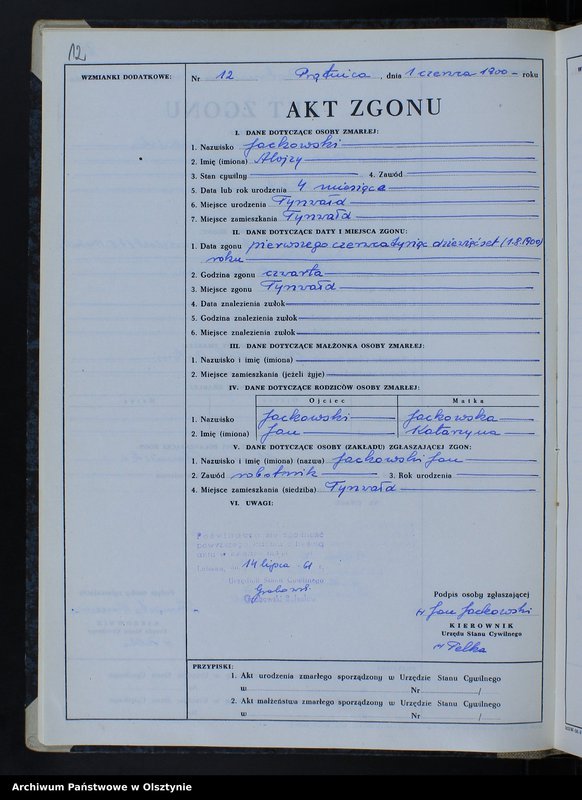 12
WZMIANKI DODATKOWE:
Nr 12 Prątnica, dnia 1 czerwca 1900 – roku
AKT ZGONU
I. DANE DOTYCZĄCE OSOBY ZMARŁEJ:
1. Nazwisko Jackowski
2. Imię (imiona) Alojzy
3. Stan cywilny 4. Zawód
5. Data lub rok urodzenia 4 miesiąca
6. Miejsce urodzenia Tynwałd
7. Miejsce zamieszkania Tynwałd
II. DANE DOTYCZĄCE DATY I MIEJSCA ZGONU:
1. Data zgonu pierwszego czerwca tysiąc dziewięćset (1.8.1900)
roku
2. Godzina zgonu czwarta
3. Miejsce zgonu Tynwałd
4. Data znalezienia zwłok
5. Godzina znalezienia zwłok
6. Miejsce znalezienia zwłok
III. DANE DOTYCZĄCE MAŁŻONKA OSOBY ZMARŁEJ:
1. Nazwisko i imię (imiona)
2. Miejsce zamieszkania (jeżeli żyje)
IV. DANE DOTYCZĄCE RODZICÓW OSOBY ZMARŁEJ:
Ojciec Matka
1. Nazwisko Jackowski Jackowska
2. Imię (imiona) Jan Katarzyna
V. DANE DOTYCZĄCE OSOBY (ZAKŁADU) ZGŁASZAJĄCEJ ZGON:
1. Nazwisko i imię (imiona) (nazwa) Jackowski Jan
2. Zawód robotnik 3. Rok urodzenia
4. Miejsce zamieszkania (siedziba) Tynwałd
VI. UWAGI:
Poświadcza się zgodność
powyższego
14 lipca 61 r.
Urzędnik Stanu Cywilnego
Podpis osoby zgłaszającej
Jan Jackowski
KIEROWNIK
Urzędu Stanu Cywilnego
Pelka
PRZYPISKI:
1. Akt urodzenia zmarłego sporządzony w Urzędzie Stanu Cywilnego
w Nr /
2. Akt małżeństwa zmarłego sporządzony w Urzędzie Stanu Cywilnego
w Nr /
Archiwum Państwowe w Olsztynie